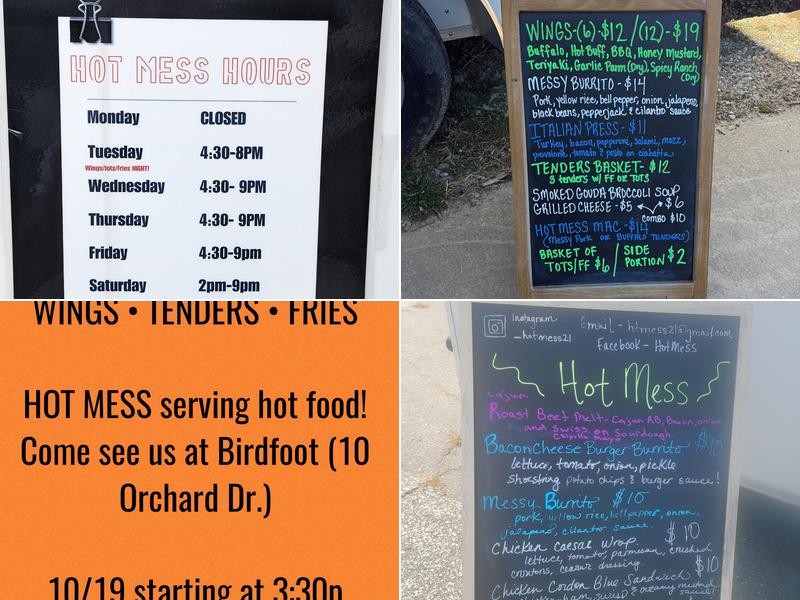 HOT MESS HOURS
Monday CLOSED
Tuesday 4:30-8PM
Wings/tots/Fries NIGHT!
Wednesday 4:30- 9PM
Thursday 4:30- 9PM
Friday 4:30-9pm
Saturday 2pm-9pm
WINGS-(6)-$12/(12)-$19
Buffalo, Hot Buff, BBQ, Honey Mustard,
Teriyaki, Garlic Parm (Dry), Spicy Ranch
(Dry)
MESSY BURRITO - $14
Pork, yellow rice, bell pepper, onion, jalapeno,
black beans, pepperjack & cilantro sauce
ITALIAN PRESS - $11
Turkey, bacon, pepperoni, salami, mozz,
provolone, tomato & pesto on ciabatta
TENDERS BASKET- $12
3 tenders w/ FF or TOTS
SMOKED GOUDA BROCCOLI SOUP
$6
GRILLED CHEESE - $5
COMBO $10
HOT MESS MAC - $14
(MESSY PORK OR BUFFALO TENDERS)
BASKET OF
TOTS/FF $6
SIDE
PORTION $2
WINGS • TENDERS • FRIES
HOT MESS serving hot food!
Come see us at Birdfoot (10
Orchard Dr.)
10/19 starting at 3:30p
Instagram
_hotmess21
Email - htmess21@gmail.com
Facebook - HotMess
Hot Mess
Cajun
Roast Beef Melt- Cajun RB, Bacon, onion
and Swiss on Sourdough
Chipotle Mayo
BaconCheese Burger Burrito $10
lettuce, tomato, onion, pickle
Shoestring potato chips & burger sauce!
Messy Burrito $10
pork, yellow rice, bell pepper, onion,
jalapeno, cilantro sauce.
Chicken Caesar Wrap. $10
lettuce, tomato, parmesan, crushed
croutons, ceasar dressing.
Chicken Cordon Blue Sandwich $10
ham, swiss & creamy mustard
sauce!